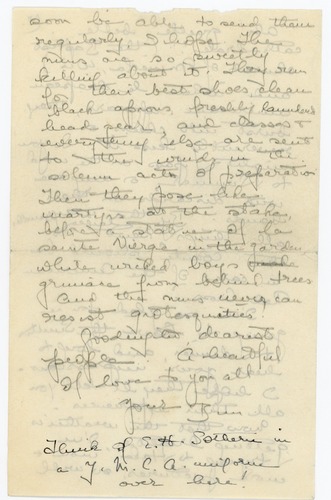 soon be able to send them
regularly I hope. The
nuns are so sweetly
killing about it. They run
for their best shoes, clean
black aprons, freshly laundered
head gear, and classes &
everything else are sent
to the winds in the
solemn acts of preparation
Then they pose like
martyrs at the stake
before a statue of la
sainte Vierge in the garden
while wicked boys
grimace from behind trees
and the nuns never can
resist grotesqueties.
Goodnight, dearest
people. A heartful
of love to you all
Your
Think of E. H. Sothern in
a Y. M. C. A. uniform
over here!